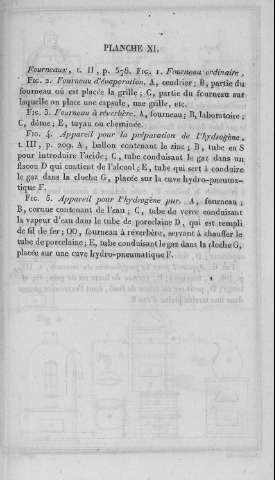 PLANCHE XI.
Fourneaux, t. II, p. 578. Fig. 1. Fourneau ordinaire.
Fig. 2. Fourneau d'évaporation. A, cendrier; B, partie du
fourneau où est placée la grille; C, partie du fourneau sur
laquelle on place une capsule, une grille, etc.
Fig. 3. Fourneau à réverbère. A, fourneau; B, laboratoire;
C, dôme; E, tuyau ou cheminée.
Fig. 4. Appareil pour la préparation de l'hydrogène,
t. III, p. 209. A, ballon contenant le zinc; B, tube en S
pour introduire l'acide; C, tube conduisant le gaz dans un
flacon D qui contient de l'alcool; E, tube qui sert à conduire
le gaz dans la cloche G, placée sur la cuve hydro-pneuma-
tique F.
Fig. 5. Appareil pour l'hydrogène pur. A, fourneau;
B, cornue contenant de l'eau; C, tube de verre conduisant
la vapeur d'eau dans le tube de porcelaine D, qui est rempli
de fil de fer; OO, fourneau à réverbère, servant à chauffer le
tube de porcelaine; E, tube conduisant le gaz dans la cloche G,
placée sur une cuve hydro-pneumatique F.